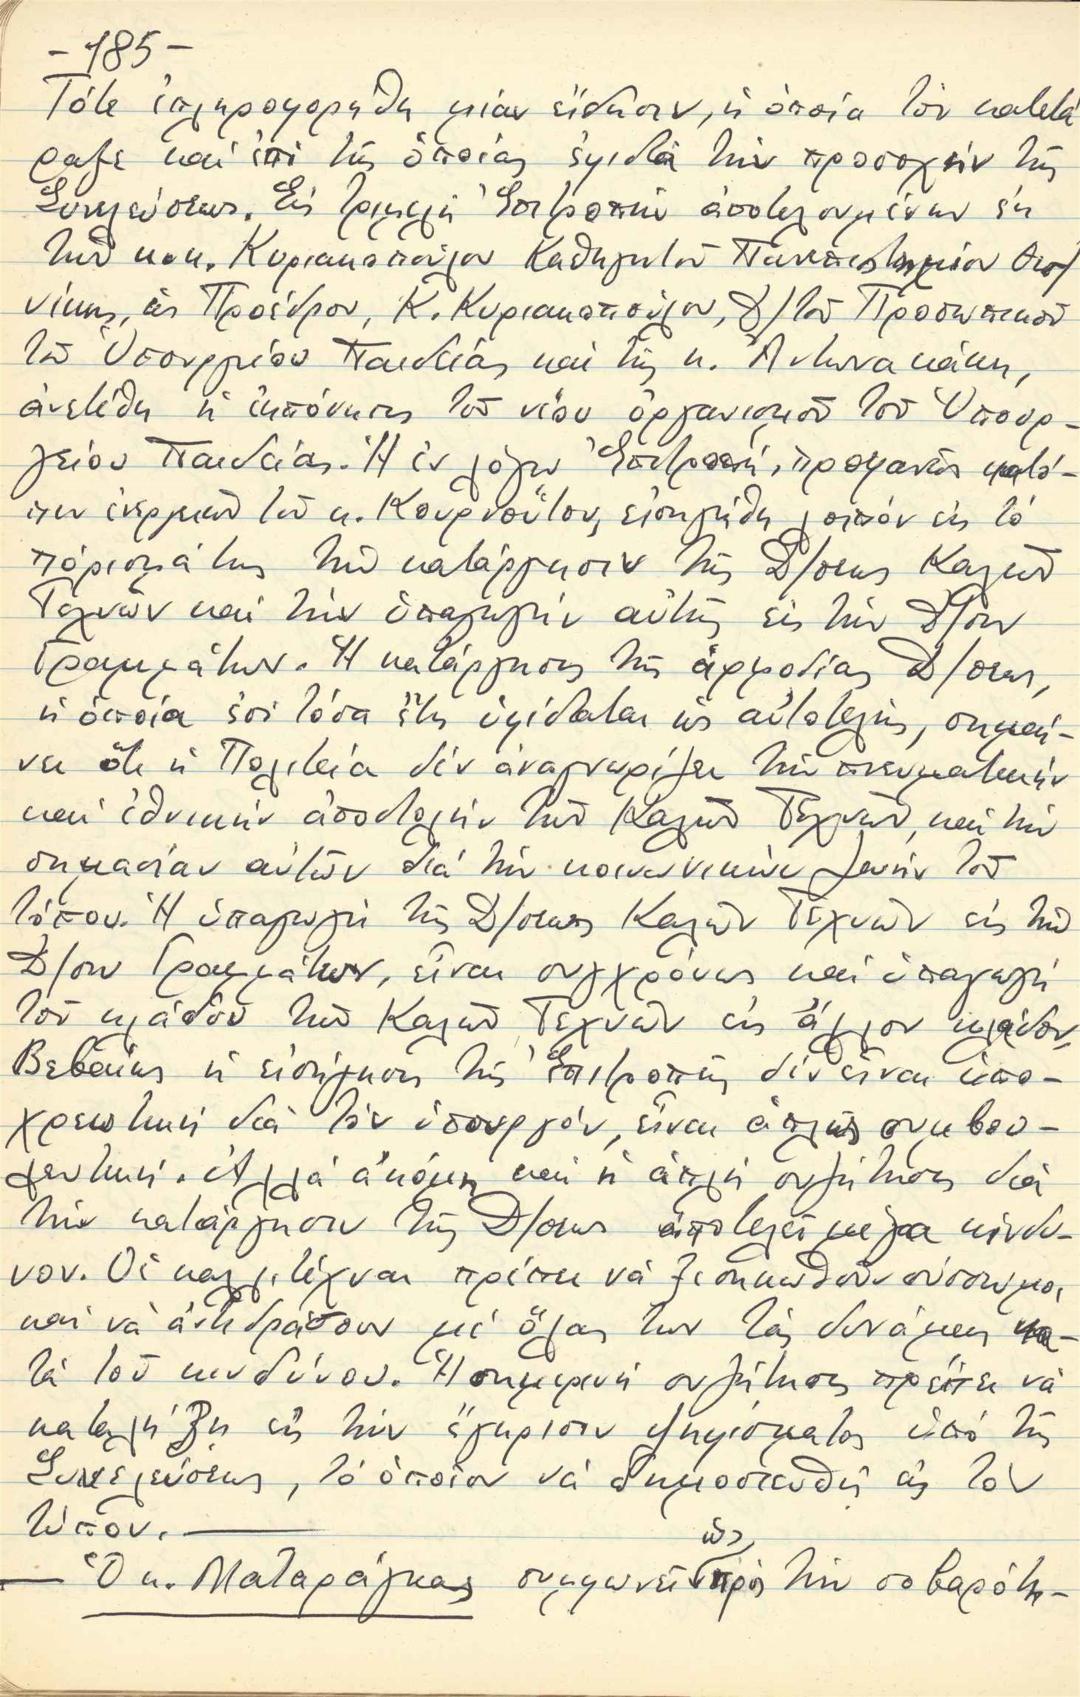 -185-
Τότε ἐπληροφορήθη μίαν εἴδησιν, ἡ ὁποία τὸν κατετά
ραξε καὶ ἐπὶ τῆς ὁποίας ἐφιστᾶ τὴν προσοχὴν τῆς
Συνελεύσεως. Εἰς τριμελῆ Ἐπιτροπὴν ἀποτελουμένην ἐκ
τῶν κ.κ. Κυριακοπούλου Καθηγητοῦ Πανεπιστημίου Θεσ/
νίκης, ὡς Προέδρου, Κ. Κυριακοπούλου, Δ/τοῦ Προσωπικοῦ
τοῦ Ὑπουργείου Παιδείας καὶ τῆς κ. Ἀντωνακάκη,
ἀνετέθη ἡ ἐκπόνησις τοῦ νέου ὀργανισμοῦ τοῦ Ὑπουρ-
γείου Παιδείας. Ἡ ἐν λόγῳ Ἐπιτροπή, προφανῶς κατό-
πιν ἐνεργειῶν τοῦ κ. Κουρνούτου, εἰσηγήθη λοιπὸν εἰς τὸ
πόρισμά της τὴν κατάργησιν τῆς Δ/σεως Καλῶν
Τεχνῶν καὶ τὴν ὑπαγωγὴν αὐτῆς εἰς τὴν Δ/σιν
Γραμμάτων. Ἡ κατάργησις τῆς ἁρμοδίας Δ/σεως,
ἡ ὁποία ἐπὶ τόσα ἔτη ὑφίσταται ὡς αὐτοτελής, σημαί-
νει ὅτι ἡ Πολιτεία δὲν ἀναγνωρίζει τὴν πνευματικὴν
καὶ ἐθνικὴν ἀποστολὴν τῶν Καλῶν Τεχνῶν, καὶ τὴν
σημασίαν αὐτῶν διὰ τὴν κοινωνικὴν ζωὴν τοῦ
τόπου. Ἡ ὑπαγωγὴ τῆς Δ/σεως Καλῶν Τεχνῶν εἰς τὴν
Δ/σιν Γραμμάτων, εἶναι συγχρόνως καὶ ὑπαγωγὴ
τοῦ κλάδου τῶν Καλῶν Τεχνῶν εἰς ἄλλον κλάδον,
Βεβαίως ἡ εἰσήγησις τῆς Ἐπιτροπῆς δὲν εἶναι ὑπο-
χρεωτικὴ διὰ τὸν ὑπουργόν, εἶναι ἁπλῶς συμβου-
λευτική. Ἀλλὰ ἀκόμη καὶ ἡ ἁπλὴ συζήτησις διὰ
τὴν κατάργησιν τῆς Δ/σεως ἀποτελεῖ μέγα κίνδυ-
νον. Οἱ καλλιτέχναι πρέπει νὰ ξεσηκωθοῦν σύσσωμοι
καὶ νὰ ἀντιδράσουν μὲ ὅλας των τὰς δυνάμεις κα-
τὰ τοῦ κινδύνου. Ἡ σημερινὴ συζήτησις πρέπει νὰ
καταλήξη εἰς τὴν ἔγκρισιν ψηφίσματος ὑπὸ τῆς
Συνελεύσεως, τὸ ὁποῖον νὰ δημοσιευθῆ εἰς τὸν
τύπον. —
— Ὁ κ. Ματαράγκας συμφωνεῖ ὡς πρὸς τὴν σοβαρότη-